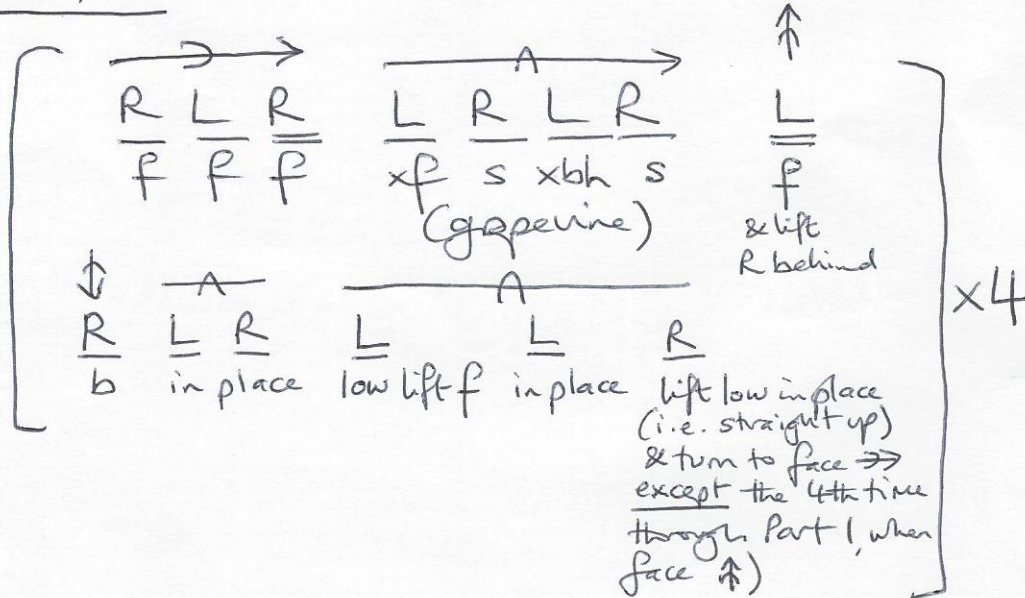 R L R L R L R L
f f f xf s xbh s f
(grapevine) & lift
R behind
R L R L L R
b in place low lift f in place lift low in place
(i.e. straight up)
& turn to face →→
except the 4th time
through Part 1, when
face ↑)
x4